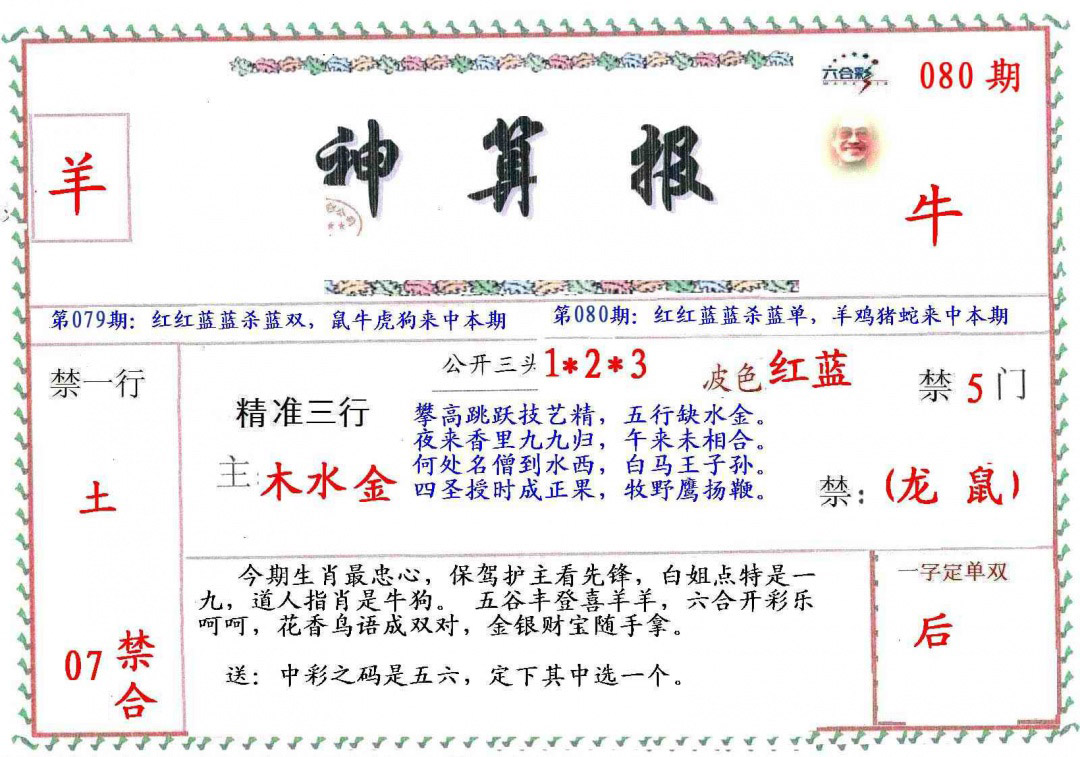 六合彩
080 期
神算报
羊
牛
第079期：红红蓝蓝杀蓝双，鼠牛虎狗来中本期
第080期：红红蓝蓝杀蓝单，羊鸡猪蛇来中本期
禁一行
土
07 禁合
公开三头 1*2*3
波色 红蓝
禁 5 门
精准三行
主: 木水金
攀高跳跃技艺精，五行缺水金。
夜来香里九九归，午来未相合。
何处名僧到水西，白马王子孙。
四圣授时成正果，牧野鹰扬鞭。
禁: (龙 鼠)
今期生肖最忠心，保驾护主看先锋，白姐点特是一
九，道人指肖是牛狗。 五谷丰登喜羊羊，六合开彩乐
呵呵，花香鸟语成双对，金银财宝随手拿。
送：中彩之码是五六，定下其中选一个。
一字定单双
后